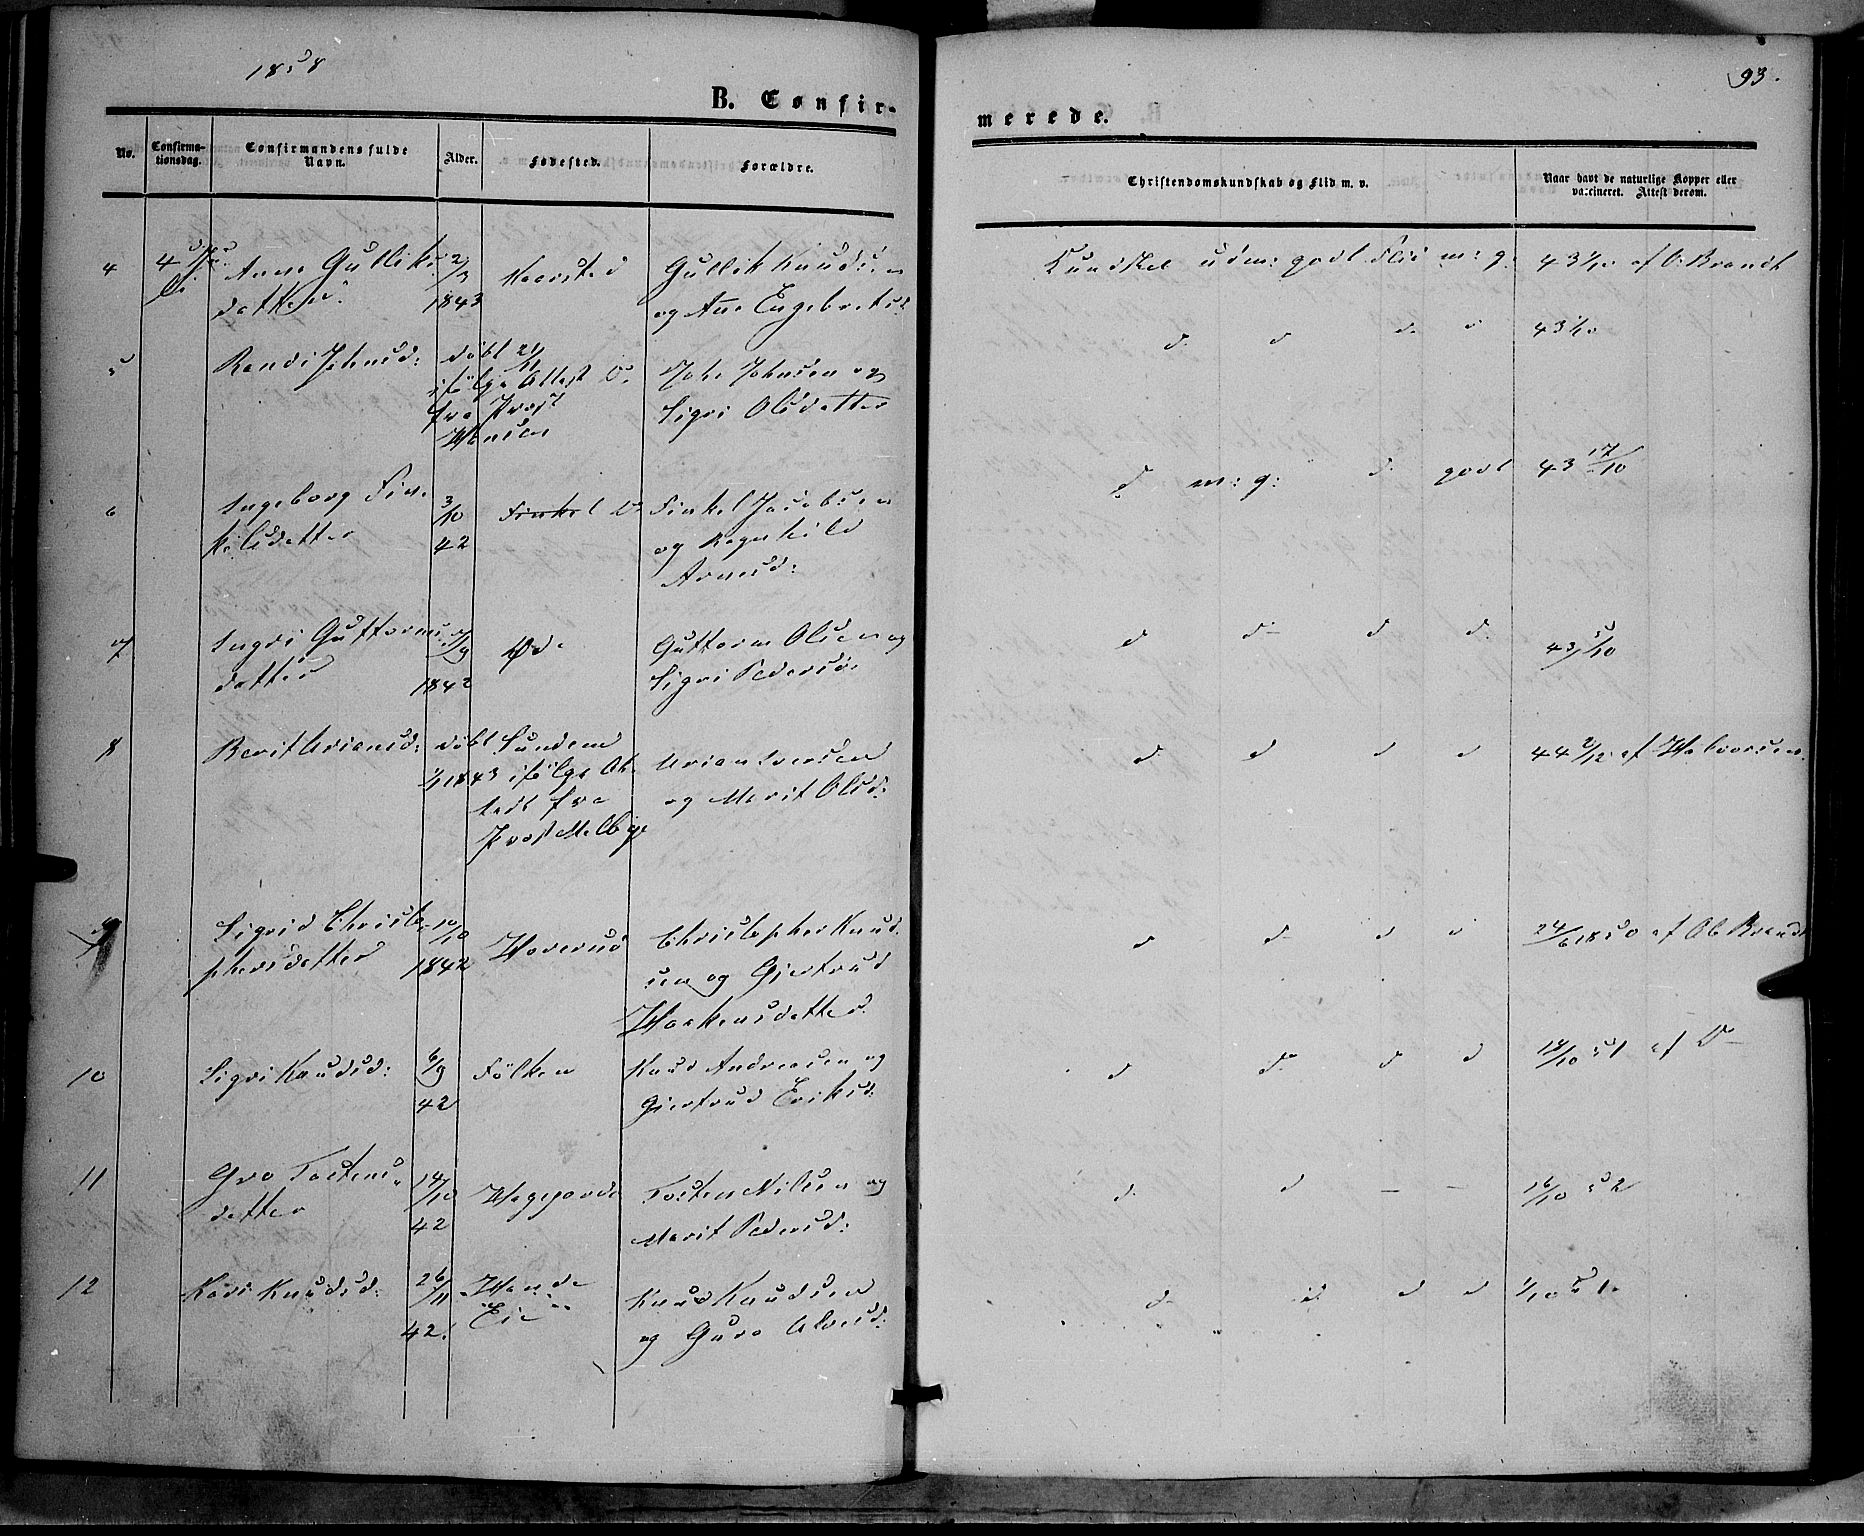 1858
93.
B. Confir-
merede.
No.
Confirma-
tionsdag.
Confirmandens fulde
Navn.
Alder.
Fødested.
Forældre.
Christendomskundskab og Flid m. v.
Naar havt de naturlige Kopper eller
vaccineret. Attest derom.
4
Anne Gulliks
datter
2/3
1843
Gullik Knudsen
og Ane Engebretsd
Kundskab udm: godt Flid m: g:
af O: Brandt
5
Randi Johnsd:
døbt 21/11
ifølge Attest
fra Provst
Hansen
John Johnsen og
Sigri Olsdatter
d d d d
6
Ingeborg Fin-
kelsdatter
3/10
42
Finkel Do
Finkel Jacobsen
og Ragnhild
Arnesd:
d m: g: d godt
43 17/10
7
Ingri Guttorms
datter
1842
Øde
Guttorm Olsen og
Sigri Pedersd.
d d d d
43 5/10
8
Berit Ariansd:
døbt
1843
Sundem
ifølge At-
test fra
Provst Melbye
Arian Iversen
og Marit Olsd:
d d d d
44 2/12 af Halvorsen.
9
Sigrid Christo-
phersdatter
10/10
1842
Christopher Knud-
sen og Gjertrud
Haakensdatter
d d d d
24/6 1850 af Ol Brandt
10
Sigri Knudsd:
6/9
42
Følken
Knud Andersen og
Gjertrud Eriksd:
d d d d
14/10 51 af Do
11
Gro Tostens-
datter
14/10
42
Tosten Nilsen og
Marit Pedersd:
d d — —
16/10 52
12
Kari Knudsd:
26/11
42.
Eie
Knud Knudsen
og Guro
d d d d
1/10 51.